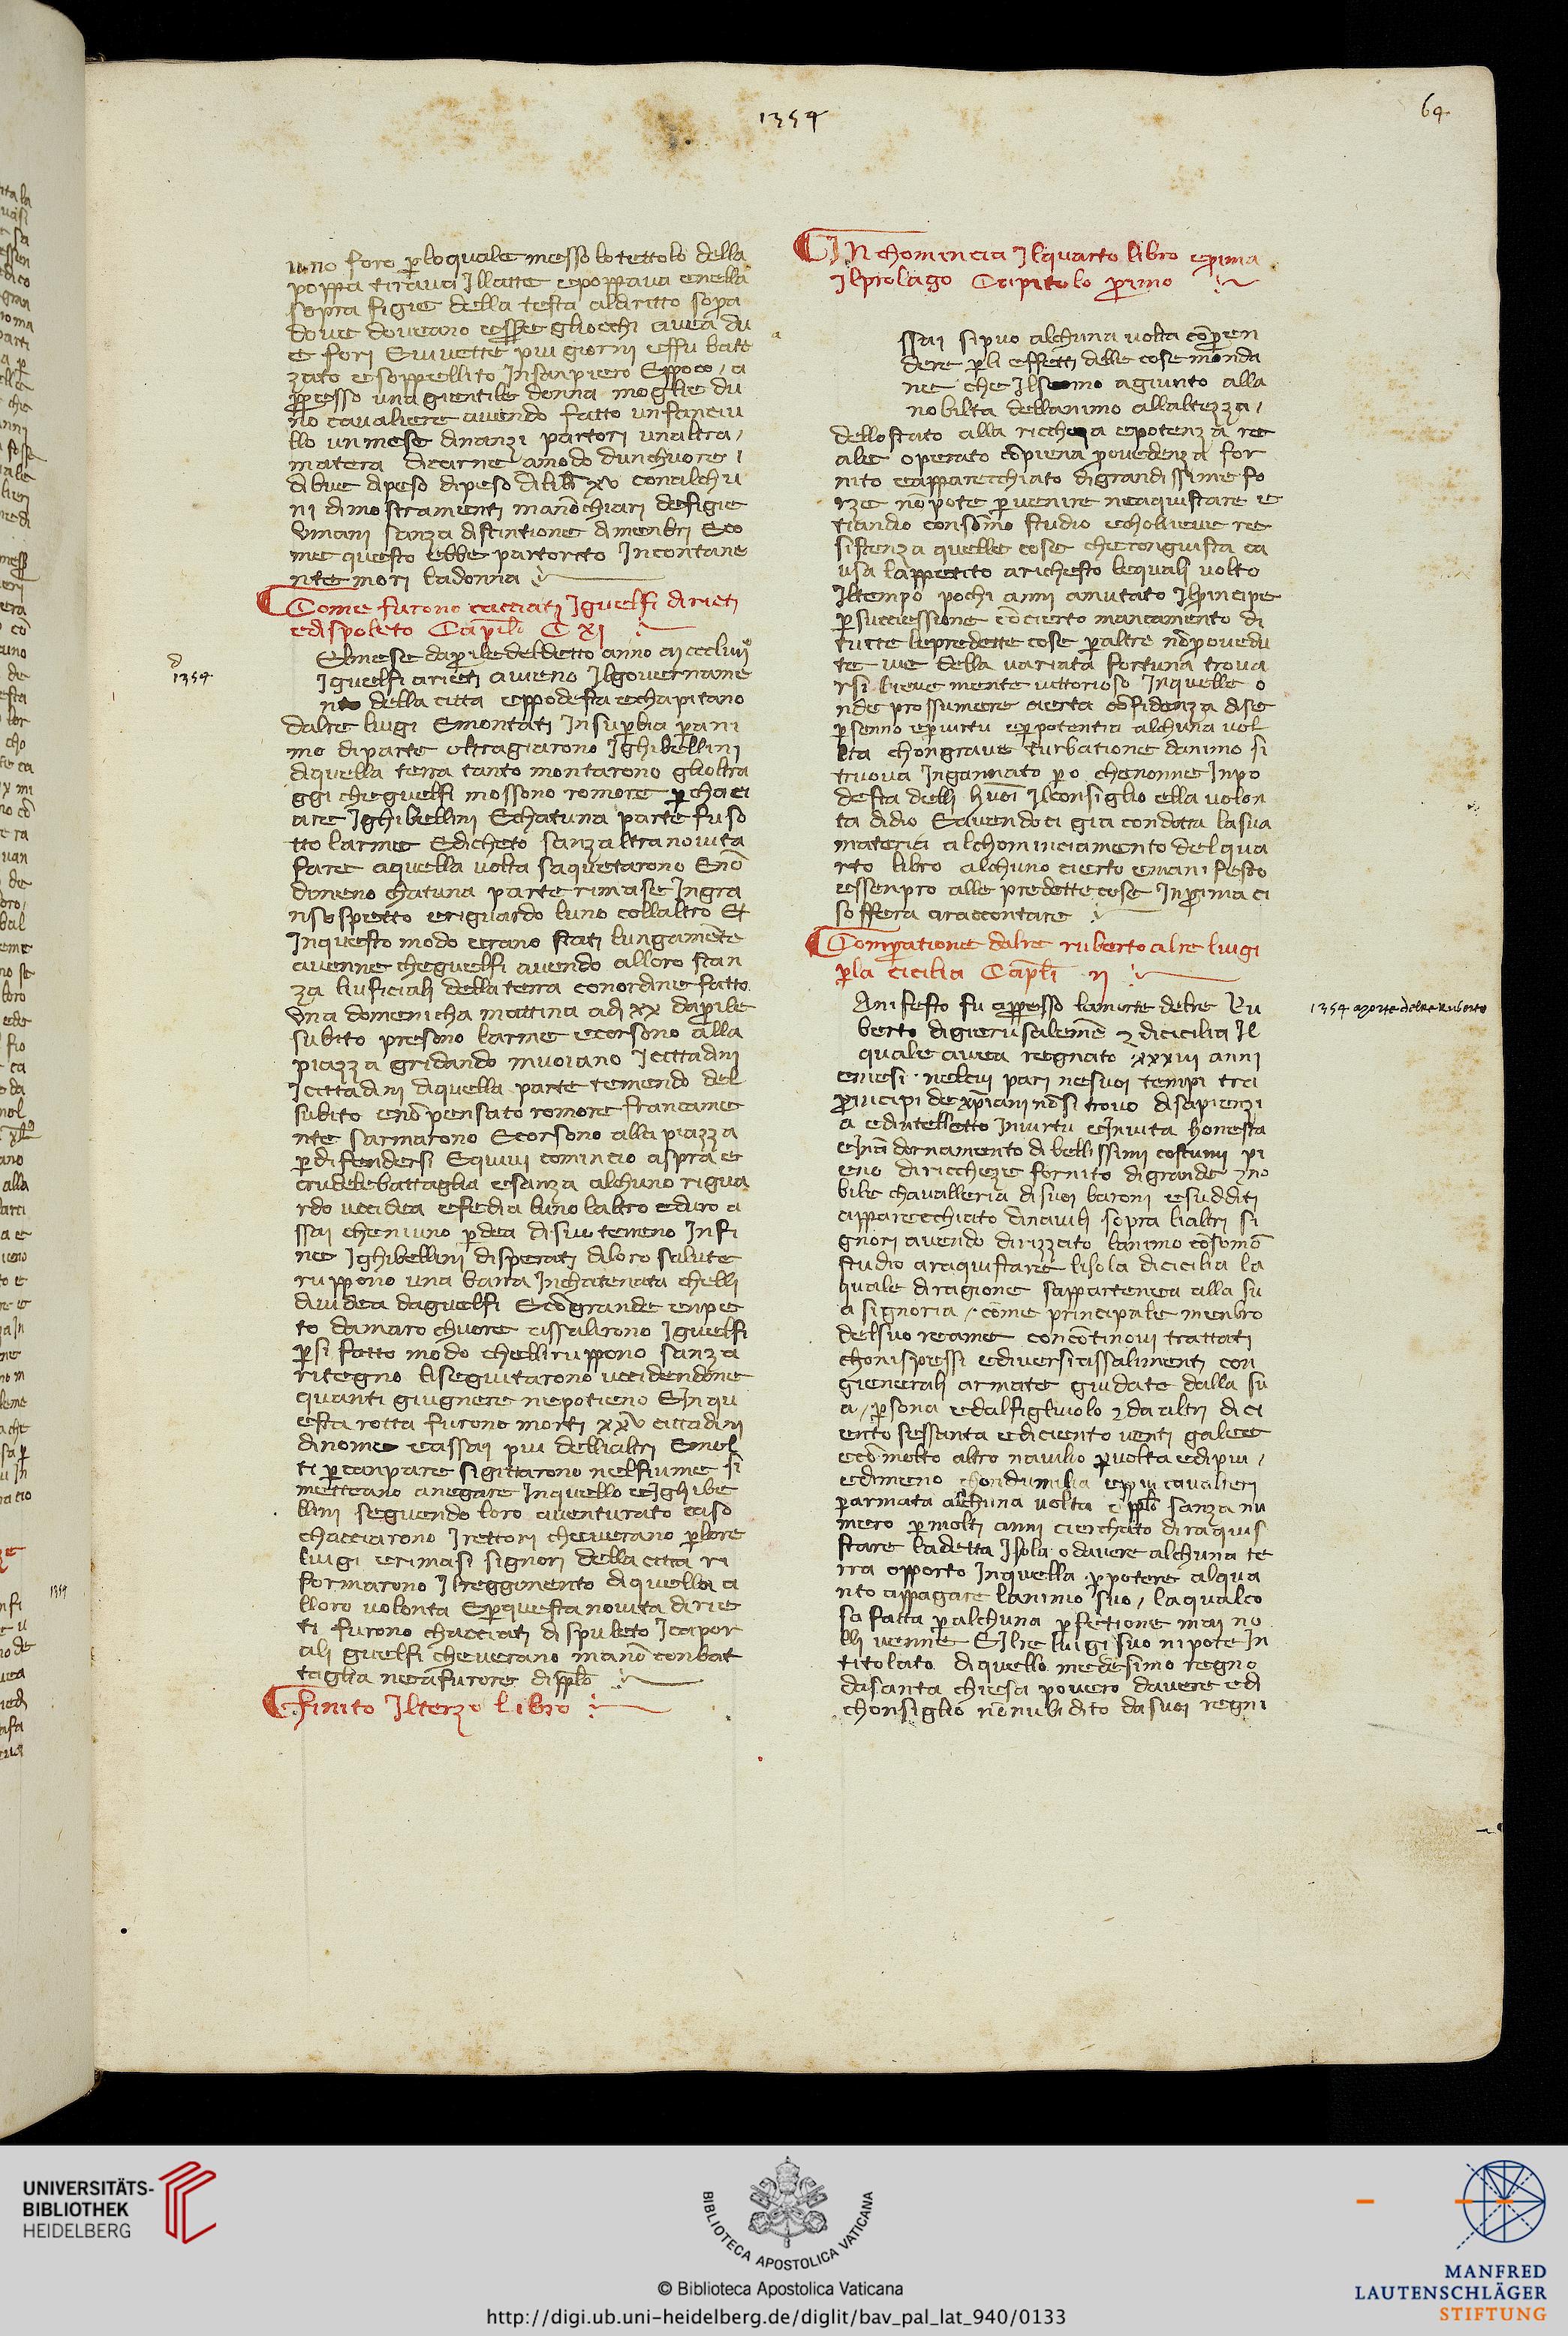 1354
64
uno foro p̱ loquale messo lo tettolo della
poppa tirava Jllatte epoppava enella
sopra figie della testa aldiritto sopa
dove doveano esse gliocchi avea du
e fori E vivette piu giorni effu batt
zato esoppellito Insanpiero E ppoco / a
ppresso una gientile donna moglie du
no cavaliere avendo fatto un fanciu
llo un mese dinanzi partori unaltra /
matera dicarne amodo dunchuore /
di bue dipeso dipeso di libr xv conalchu
ni dimostramenti manō chiari defigie
Vmani sanza distintione dimenbri E co
me questo ebbe partorito Incontane
nte mori ladonna
Come furono cacciati Jguelfi dirieti
edispoleto Capitl̄i C xi
Elmese daprile deldetto anno m ccc liiijº
1354
Jguelfi arieti avieno Jlgovername
nto della citta eppodesta echapitano
dalre luigi E montati Insup̱bia p̱ ani
mo diparte oltragiarono Jghibellini
diquella terra tanto montarono glioltra
ggi cheguelfi mossono romore p̱ chaci
are Jghibellini E chatuna parte fu so
tto larme Edicheto sanzaltranovita
fare aquella volta saquetarono E nō
dimeno chatuna parte rimase Ingra
nsospetto eriguardo luno collaltro Et
Inquesto modo erano stati lungamēte
avenne cheguelfi avendo alloro stan
za liuficiali della terra conordine fatto
Vna domenicha mattina adi xx daprile
subito presono larme ecorsono alla
piazza gridando muoiano Jcittadini
Jcittadini diquella parte temendo del
subito enō pensato romore francame
nte sarmarono E corsono alla piazza
p̱ difendersi E quivi comincio aspra e
crudele battaglia esanza alchuno rigua
rdo uccidea efedia luno laltro eduro a
ssai cheniuno p̱dea disuo terreno Infi
ne Jghibellini disperati diloro salute
ruppono una barra Inchatenata chelli
dividea daguelfi E cō grande enpe
to damaro chuore assalirono Jguelfi
p̱ si fatto modo chelliruppono sanza
ritegno liseguitarono uccidendone
quanti giugnere nepotieno E Inqu
esta rotta furono morti xxv cittadini
dinome eassai piu dellialtri E mol
ti p̱ canpare sigittarono nelfiume si
metteano anegare Inquello eJghibe
llini seguendo loro aventurato caso
chacciarono Jrettori cheverano p̱ lore
luigi erimasi signori della citta ri
formarono Jlreggimento diquella a
lloro volonta E p̱ questa novita dirie
ti furono chacciati di spuleto Jcapor
ali guelfi cheverano manō conbat
taglia neafurore dippl̄o
finito Jlterzo libro
INchomincia Jlquarto libro eprima
Jlprolago Capitolo primo
a
ssai sipuo alchuna volta cōpren
dere p̱ li effetti delle cose monda
ne che Jlsommo agiunto alla
nobilta dellanimo allaltezza /
dellostato alla riccheza epotenza re
ale operato cōpiena provedenza for
nito eapparecchiato digrandissime fo
rze nōpote p̱venire neaquistare e
tiandio consōmo studio echolieve re
sistenza quelle cose checonquista ca
usa lappetito arichesto lequali volto
Jltempo pochi anni amutato Jlprincipe
p̱ successione cō cierto mancamento di
tutte lepredette cose p̱ altre nōprovedu
te vie della variata fortuna trova
rsi lievemente vittorioso Inquelle o
nde prossumere cierta cōfidenza dise
p̱ senno ep̱ virtu ep̱ potentia alchuna vol
lta chongrave turbatione danimo si
truova Ingannato p̱o chenonne Inpo
desta delli huoī Jlconsiglio ella volon
ta didio E avendoci gia condotta lasua
materia alchominciamento delqua
rto libro alchuno cierto emanifesto
essenpro alle predettecose Inprima ci
soffera araccontare
Comperatione dalre ruberto alre luigi
p̱ la cicilia Capitl̄i ij
Anifesto fu appresso lamorte delre Ru
1354 morte delre ruberto
berto digierusalemē ⁊ dicicilia Jl
quale avea regnato xxxvi anni
emesi nelcui pari nesuoi tempi tra
principi de xp̄iani nōsi trovo disapienzi
a edintelletto Invirtu eInvita honesta
eInā dornamento di bellissimi costumi pi
eno diriccheze fornito digrande ⁊ no
bile chavalleria disuoi baroni esudditi
apparecchiato dinavili sopra lialtri si
gnori avendo dirizzato lanimo cōsomō
studio aracquistare lisola dicicilia la
quale diragione sappartenea alla su
a signoria / cōme principale menbro
delsuo reame concōtinovi trattati
chonispessi ediversi assalimenti con
gienerali armate guidate dalla su
a / p̱sona edalfigliuolo ⁊ da altri dici
ento sessanta edicciento venti galee
ecō molto altro navilio p̱ volta edipiu /
edimeno chondumilia eppiu cavalieri
p̱ armata alchuna volta e ppl̄o sanza nu
mero p̱ molti anni cierchato diraquis
stare ladetta Jsola odavere alchuna te
rra opporto Inquella p̱ potere alqua
nto appagare lanimo suo / laqualco
sa fatta p̱ alchuna p̱fectione mai no
lli venne E Jlre luigi suo nipote In
titolato diquello medesimo regno
dasanta chiesa povero davere edi
chonsiglio nōnubidito dasuoi regni
1354
UNIVERSITÄTS-
BIBLIOTHEK
HEIDELBERG
BIBLIOTECA APOSTOLICA VATICANA
© Biblioteca Apostolica Vaticana
http://digi.ub.uni-heidelberg.de/diglit/bav_pal_lat_940/0133
MANFRED
LAUTENSCHLÄGER
STIFTUNG